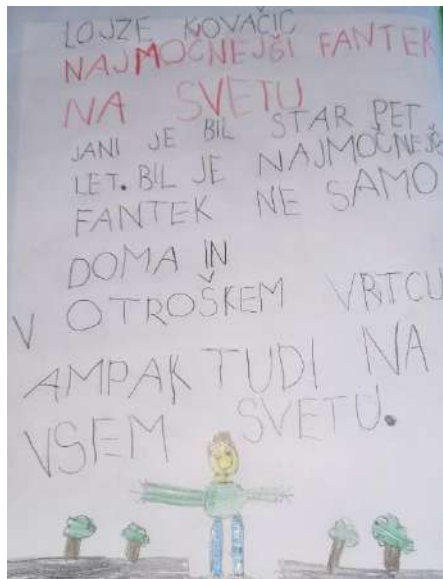 LOJZE KOVAČIČ
NAJMOČNEJŠI FANTEK
NA SVETU
JANI JE BIL STAR PET
LET. BIL JE NAJMOČNEJŠ
FANTEK NE SAMO
DOMA IN
V OTROŠKEM VRTCU
AMPAK TUDI NA
VSEM SVETU.